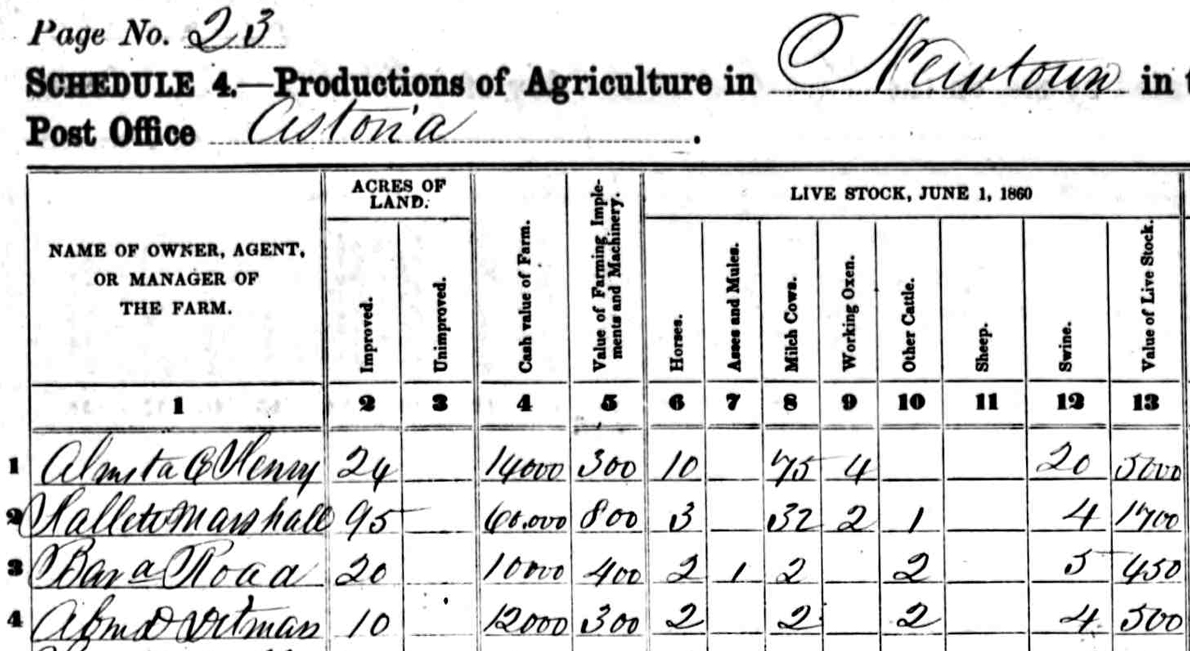 Page No. 23
SCHEDULE 4.—Productions of Agriculture in Newtown in
Post Office Astoria.
NAME OF OWNER, AGENT, OR MANAGER OF THE FARM.
ACRES OF LAND.
Improved.
Unimproved.
Cash value of Farm.
Value of Farming Implements and Machinery.
LIVE STOCK, JUNE 1, 1860
Horses.
Asses and Mules.
Milch Cows.
Working Oxen.
Other Cattle.
Sheep.
Swine.
Value of Live Stock.
1 2 3 4 5 6 7 8 9 10 11 12 13
1 Henry 24 14000 300 10 75 4 20 5000
2 Marshall 95 800 3 32 2 1 4 1700
3 Road 20 10000 400 2 1 2 2 5 450
4 Ditmars 10 12000 300 2 2 2 4 500